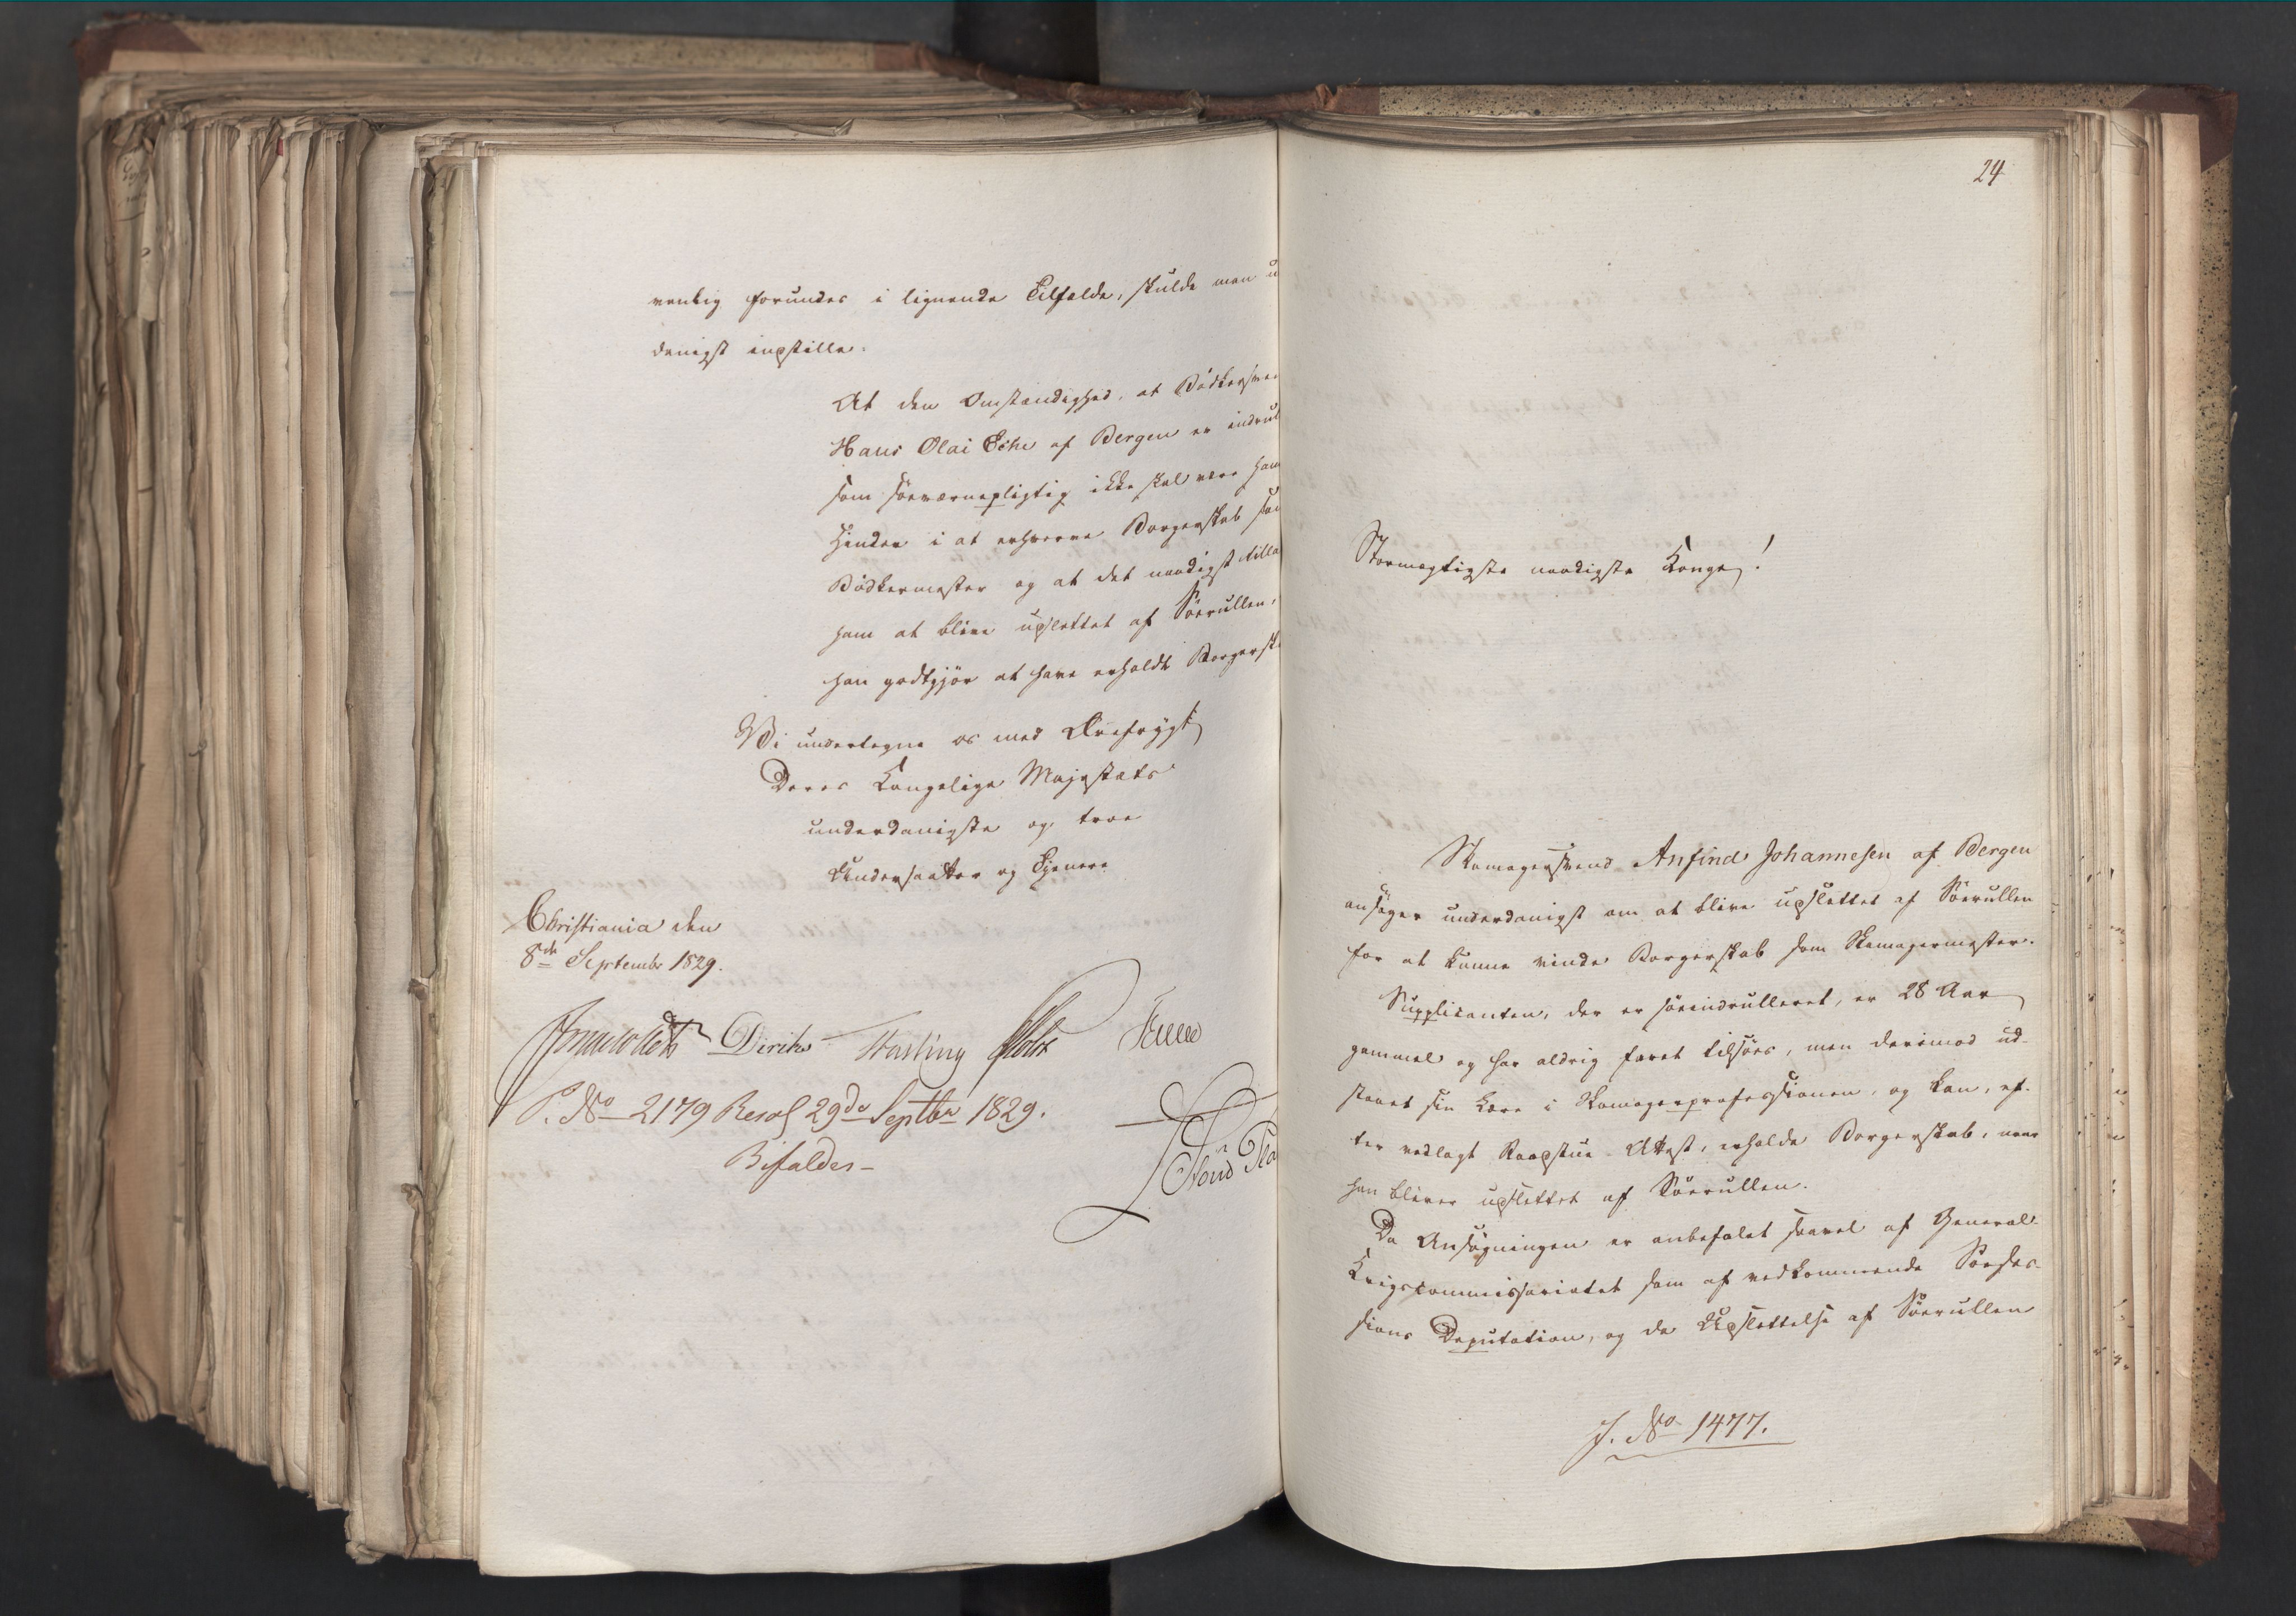 ventlig forundes i lignende Tilfælde, skulde man u
danigst indstille:
At den Omstændighed, at Bødkersven
Hans Olai Eche af Bergen er indrul
som søeværnepligtig ikke skal være ham
Hinder i at erhverve Borgerskab som
Bødkermester og at det naadigst tilla
ham at blive udslettet af Søerullen,
han godtgjør at have erholdt Borgersk
Vi undertegne os med Ærefrygt
Deres Kongelige Majestæts
underdanigste og troe
Undersaatter og Tjenere
Christiania den
8de Septembr 1829.
Diriks
P. No 2179 Resol 29de Septbr 1829.
Bifaldes
24
Stormægtigste naadigste Konge!
Skomagersvend Anfind Johannesen af Bergen
ansøger underdanigst om at blive udslettet af Søerullen
for at kunne vinde Borgerskab som Skomagermester.
Supplicanten, der er søeindrulleret, er 28 Aar
gammel og har aldrig faret tilsøes, men derimod ud-
staaet sin Lære i Skomagerprofessionen, og kan, ef-
ter vedlagt Raadstue-Attest, erholde Borgerskab, naar
han bliver udslettet af Søerullen.
Da Ansøgningen er anbefalet saavel af General-
Krigscommissariatet som af vedkommende Søeses-
sions Deputation, og da Udslettelse af Søerullen
J. No 1477.